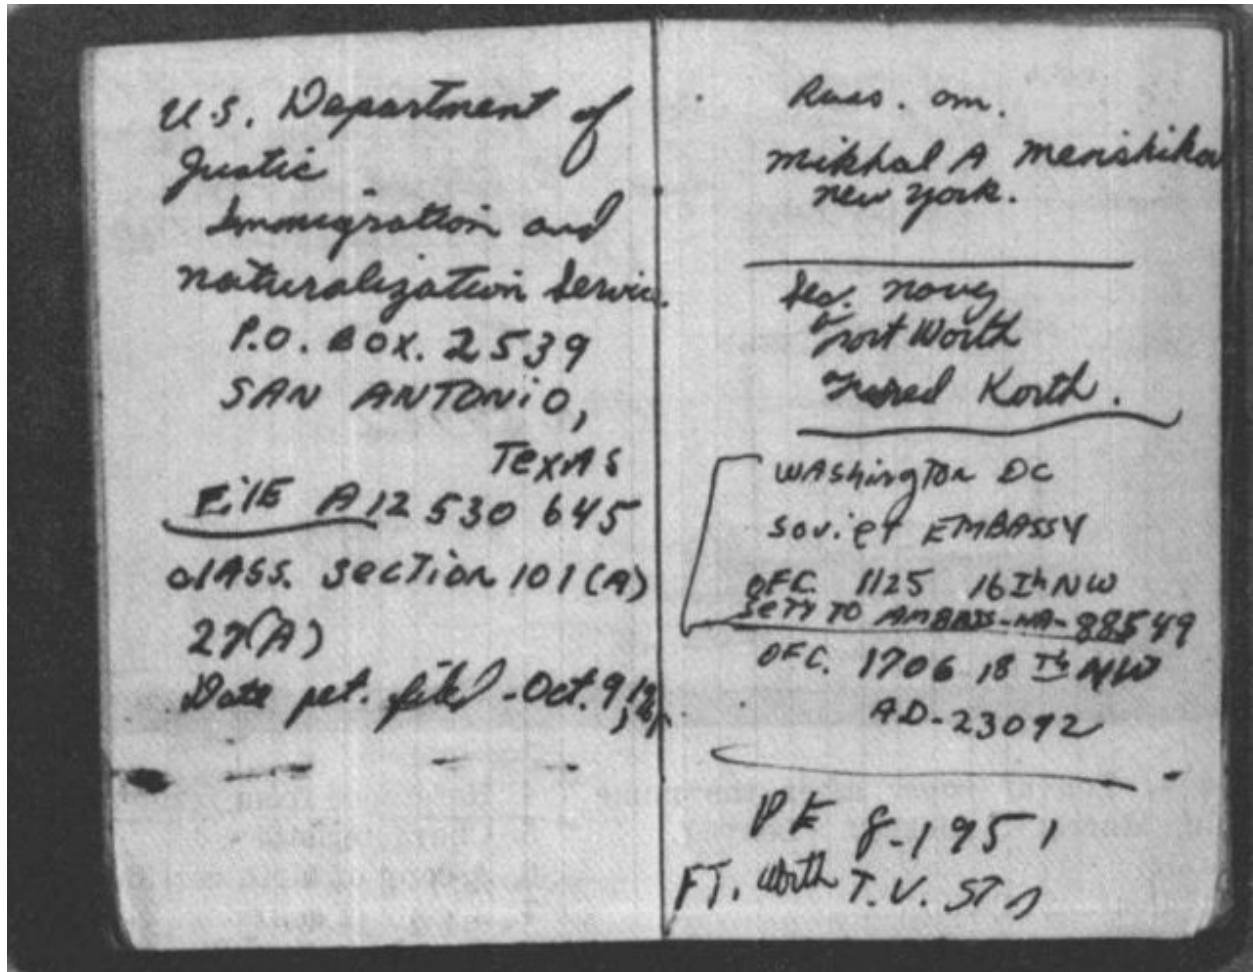 U.S. Department of
Justic
Immigration and
naturalization Servic.
P.O. BOX. 2539
SAN ANTONiO,
TEXAS
FilE A12 530 645
clASS. SecTion 101(A)
27(A)
Date pet. filed - Oct. 9,
Russ. am.
mikhal A Menshikov
new york.
Sec. navy
Fort Worth
Fred Korth.
WAshingTon DC
Soviet EMBASSY
OFC. 1125 16Th NW
TO AMBASS-NA-88549
OFC. 1706 18 Th NW
AD-23092
PE 8-1951
FT. Worth T.V. ST